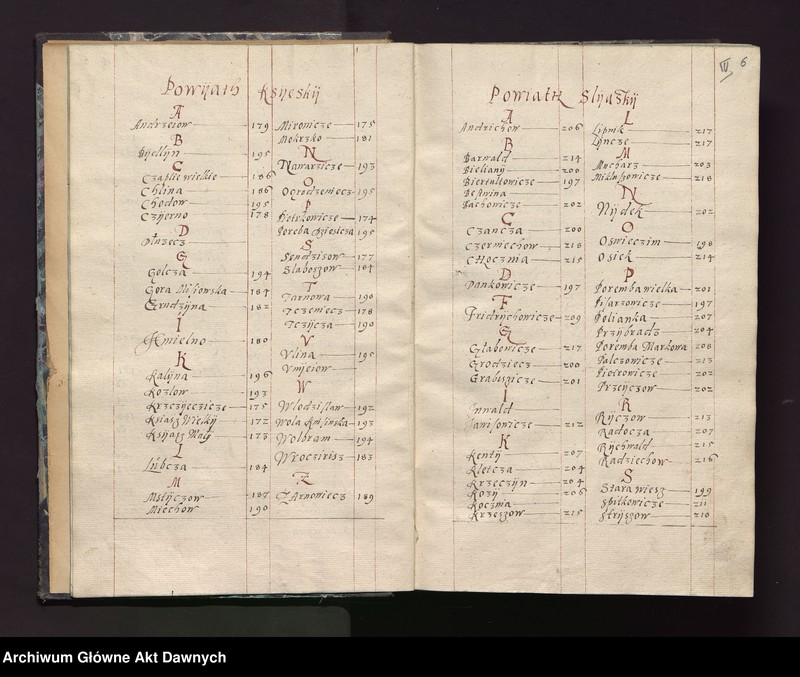 Powyath Ksyeskij
A
Andrzeiow 179
B
Bydlijn 195
C
Czaplie wielkie 186
Chlina 186
Chodow 195
Czijerno 178
D
Dłużecz
G
Golcza 194
Gora 184
Grudzijna 182
I
Jkmielno 180
K
Kalijna 196
Kozlow 193
Krzczijeczicze 175
Ksiasz Wielkij 172
Ksijasz Malij 173
L
Lubcza 184
M
Mstijczow 187
Miechow 190
Mironicze 175
Mokrzko 181
N
Nawarzicze 193
O
Ogrodzieniecz 195
P
Potrkowicze 174
Poreba Dzieszicza 195
S
Sendzisow 177
Slaboszow 184
T
Tarnowa 190
Tczeniecz 178
Tczijcza 190
V
Vlina 195
Vniejow
W
Wlodzislaw 192
Wola 193
Wolbram 194
Wrocziris 183
Z
Zarnowiecz 189
Powiath Slijaskij
IV 6
A
Andrichow 206
B
Barwald 214
Bielianij 200
Biertultowicze 197
Bestwina
Bachowicze 202
C
Czancza 200
Czerniechow 218
Chocznia 215
D
Dankowicze 197
F
Fridrijchowicze 209
G
Głabowicze 217
Grodziecz 200
Grabuszicze 201
I
Inwald
Janisowicze 212
K
Kentij 207
Kletcza 204
Krzeczijn 204
Kozij 206
Koczina
Krzeszow 215
L
Lipnik 217
Lijncze 217
M
Mucharz 203
Mikluszowicze 218
N
Nijdek 202
O
Oswieczim 198
Osiek 214
P
Poremba wielka 201
Pisarzowicze 197
Polianka 207
Przijbradz 204
Poremba Markowa 208
Palczowicze 213
Piotrowicze 202
Przeijczow 202
R
Rijczow 213
Radocza 207
Rijchwald 215
Radziechow 216
S
Stara wiesz 199
Spitkowicze 211
Strijszow 210
Archiwum Główne Akt Dawnych